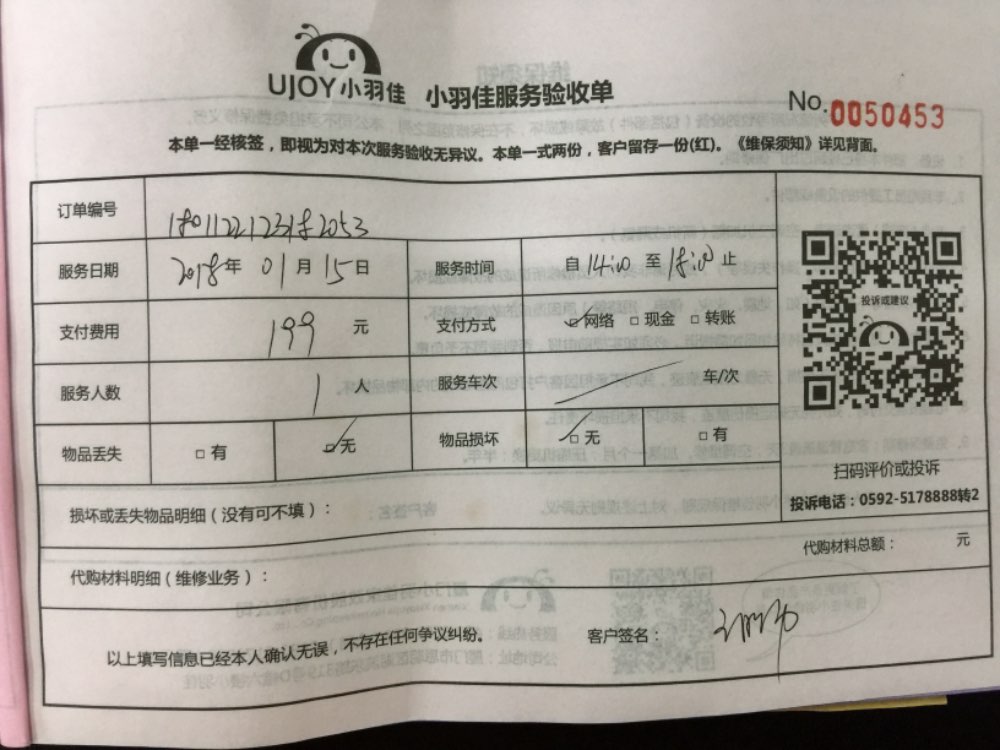 UJOY小羽佳 小羽佳服务验收单
No.0050453
本单一经核签，即视为对本次服务验收无异议。本单一式两份，客户留存一份(红)。《维保须知》详见背面。
订单编号
服务日期 2018年 01月15日 服务时间 自14:00 至18:00 止
支付费用 199 元 支付方式 ☑网络 □现金 □转账
服务人数 1 人 服务车次 车/次
物品丢失 □有 ☑无 物品损坏 ☑无 □有
投诉或建议
扫码评价或投诉
投诉电话：0592-5178888转2
损坏或丢失物品明细（没有可不填）：
代购材料总额： 元
代购材料明细（维修业务）：
以上填写信息已经本人确认无误，不存在任何争议纠纷。 客户签名：